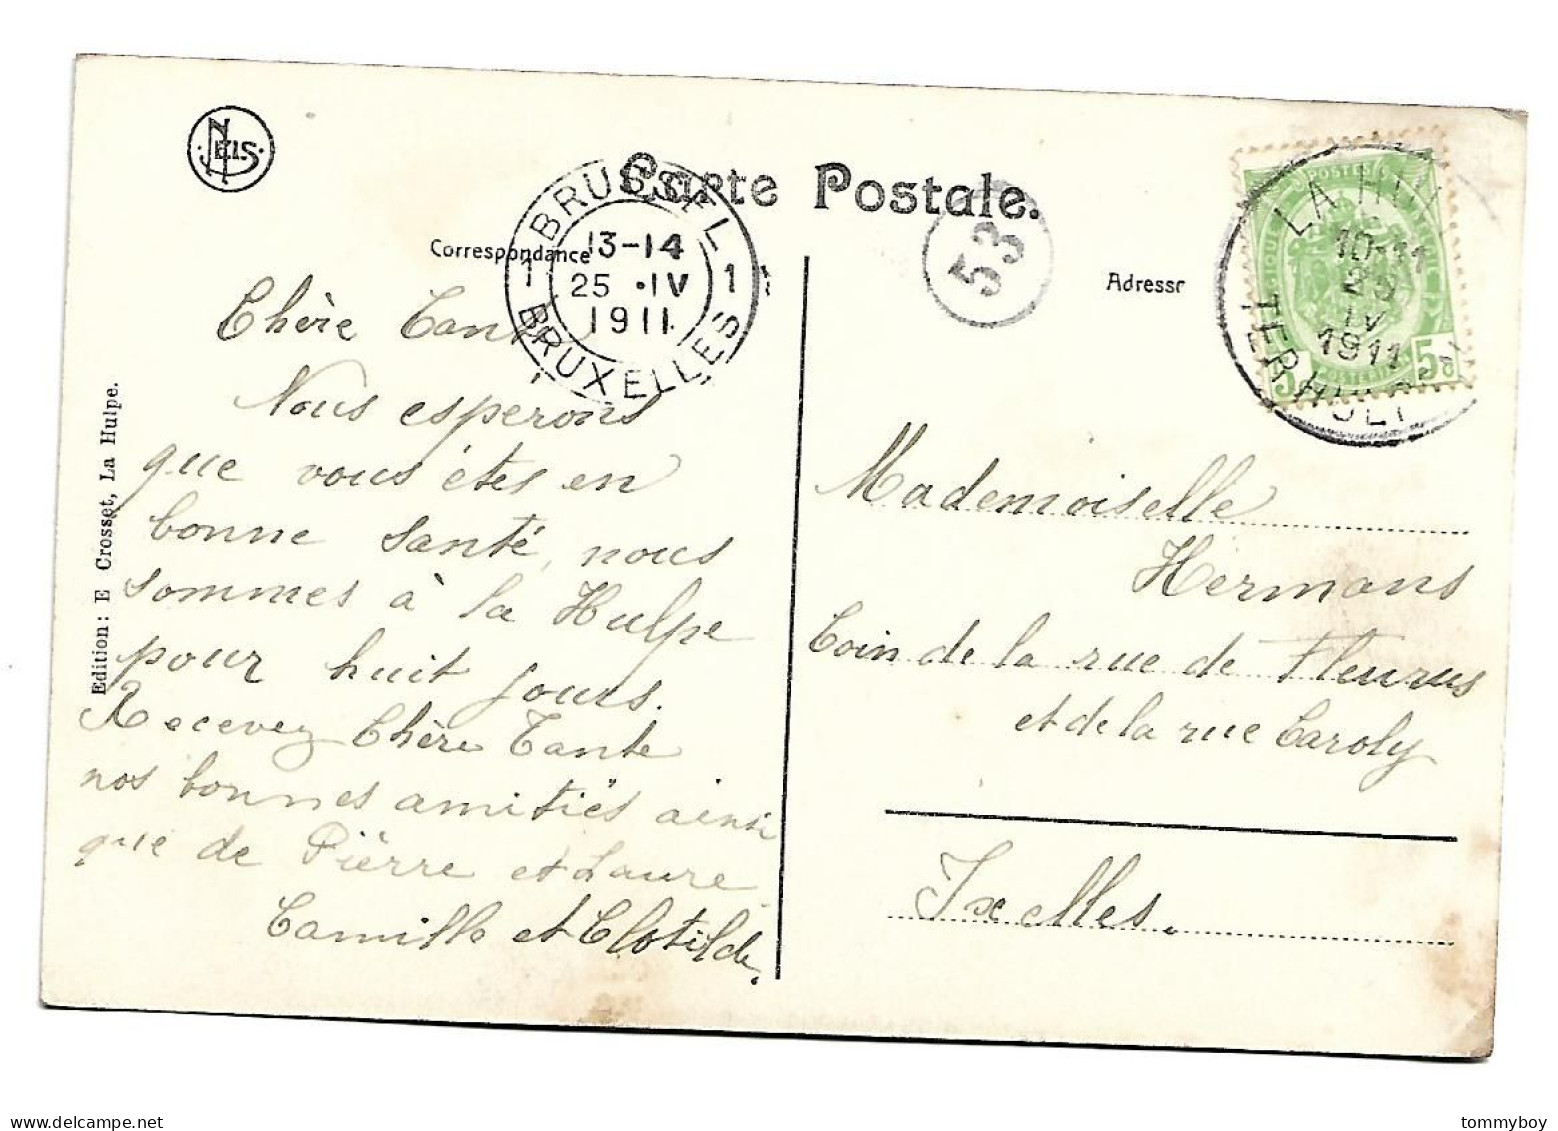 NELS
Carte Postale.
Correspondance
Adresse
BRUSSEL
1 1
13-14
25 · IV
1911
BRUXELLES
53
LA HUL
10-11
25
IV
1911
TER HULP
5 5
Edition: E Crosset, La Hulpe.
Chère Tante
Nous esperons
que vous êtes en
bonne santé, nous
sommes à la Hulpe
pour huit jours.
Recevez Chère Tante
nos bonnes amitiés ainsi
que de Pièrre et Laure
Camille et Clotilde.
Mademoiselle
Hermans
Coin de la rue de Fleurus
et de la rue Caroly
Ixelles.
tommyboy